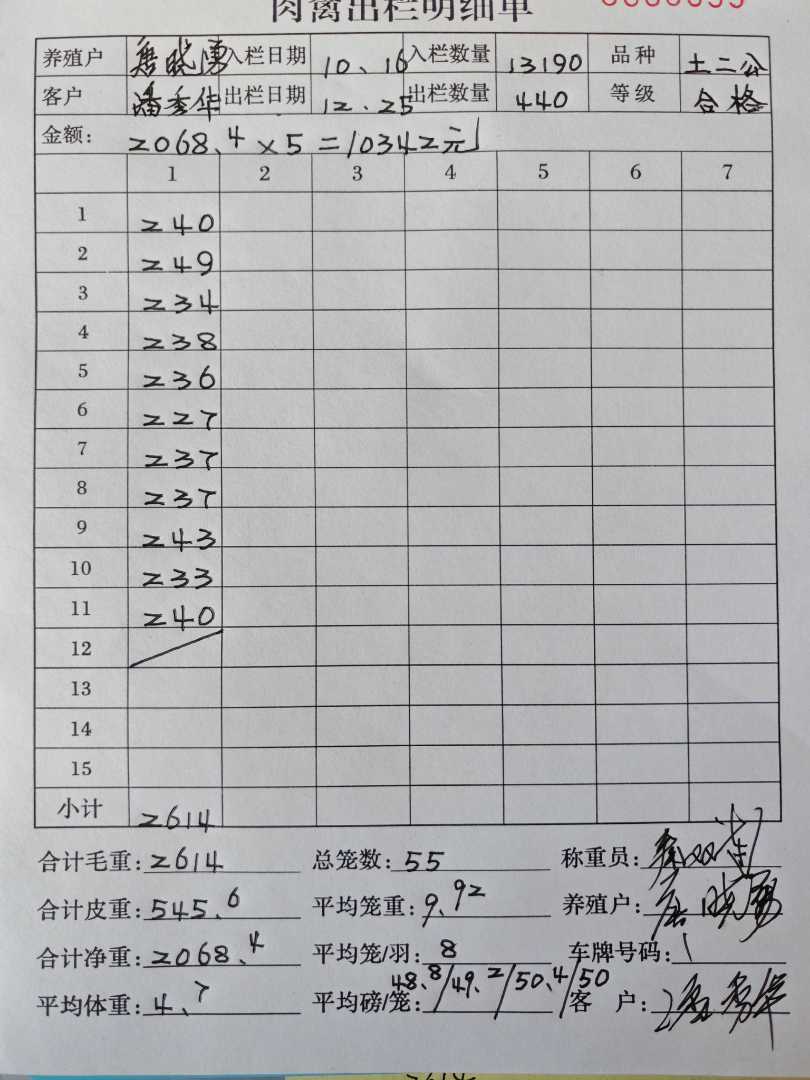 肉禽出栏明细单
养殖户 唐晓勇 入栏日期 10、16 入栏数量 13190 品种 土二公
客户 潘秀华 出栏日期 12.25 出栏数量 440 等级 合格
金额: 2068.4×5=10342元
1 2 3 4 5 6 7
1 240
2 249
3 234
4 238
5 236
6 227
7 237
8 237
9 243
10 233
11 240
12
13
14
15
小计 2614
合计毛重:2614 总笼数:55 称重员:
合计皮重:545.6 平均笼重:9.92 养殖户:唐晓勇
合计净重:2068.4 平均笼/羽:8 车牌号码:
平均体重:4.7 平均磅/笼:48.8/49.2/50.4/50 客 户:潘秀华